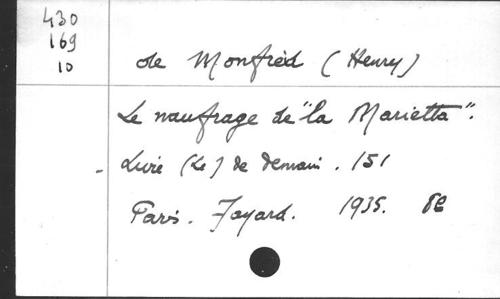 430
169
10
de Monfried (Henry)
Le naufrage de "la Marietta".
- Livre (Le) de demain. 151
Paris. Fayard. 1935. 8º